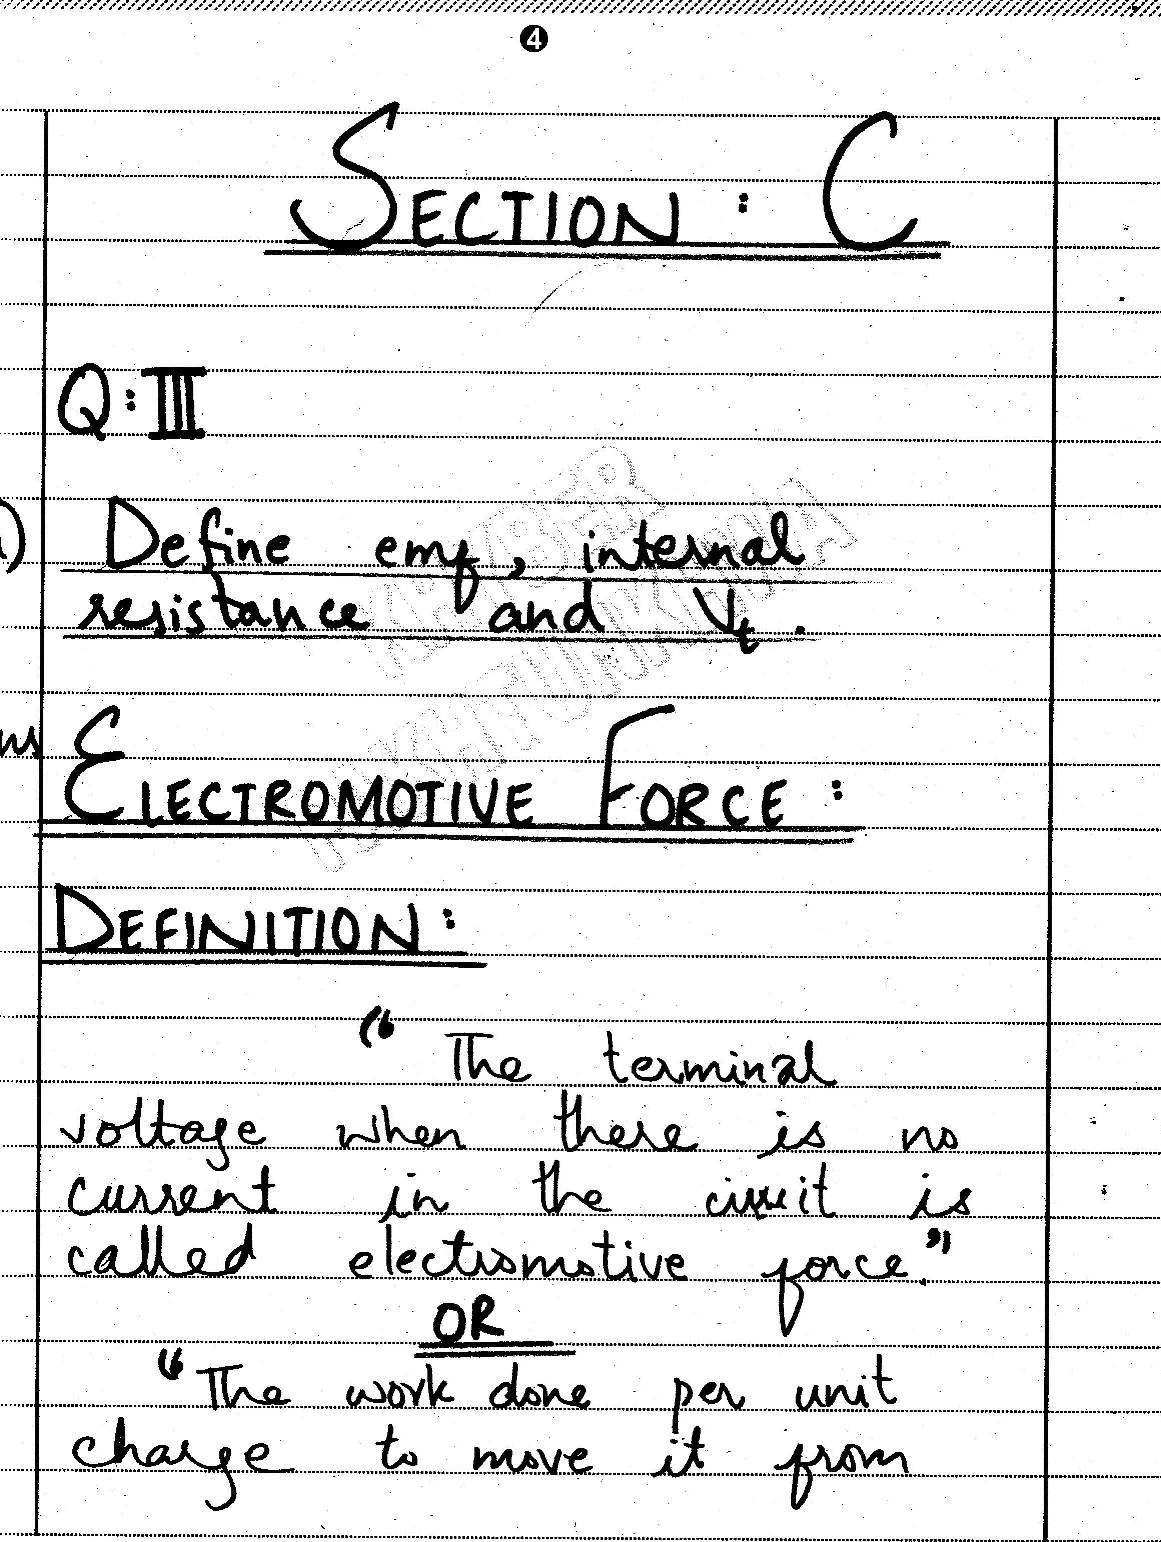 4
SECTION : C
Q: III
) Define emf, internal
resistance and Vt.
ns ELECTROMOTIVE FORCE :
DEFINITION :
“ The terminal
voltage when there is no
current in the circuit is
called electromotive force.”
OR
“ The work done per unit
charge to move it from
KHYBER
PAKHTUNKHWA